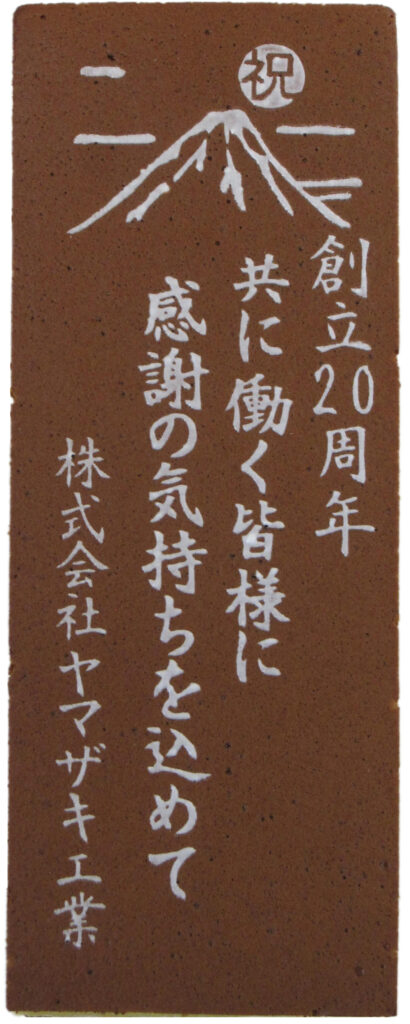 祝
創立20周年
共に働く皆様に
感謝の気持ちを込めて
株式会社ヤマザキ工業